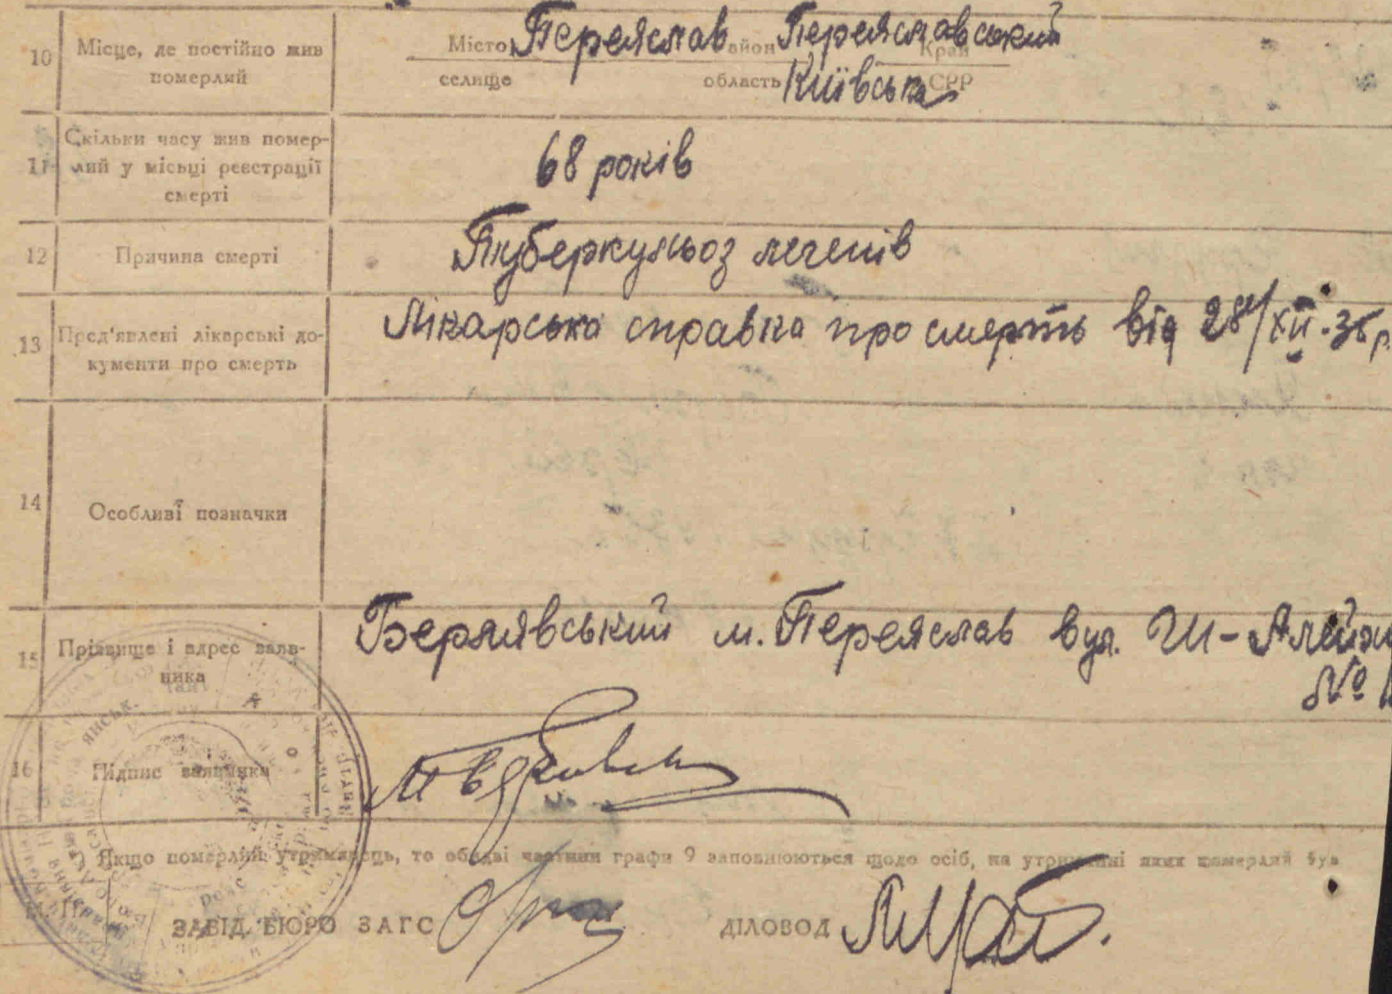 10 Місце, де постійно жив Місто Переяслав район Переяславський Край
померлий селище область Київська СРР
11 Скільки часу жив помер-
лий у місьці реєстрації 68 років
смерті
12 Причина смерті Туберкульоз легенів
13 Пред'явлені лікарські до- Лікарська справка про смерть від 28/XII-36 р.
кументи про смерть
14 Особливі позначки
15 Прізвище і адрес заяв- Берлявський м. Переяслав вул. Ш-Алейх
ника №
16 Підпис заявника
Якщо померлий утриманець, то обидві частини графи 9 заповнюються щодо осіб, на утриманні яких померлий був
ЗАВІД. БЮРО ЗАГС ДІЛОВОД